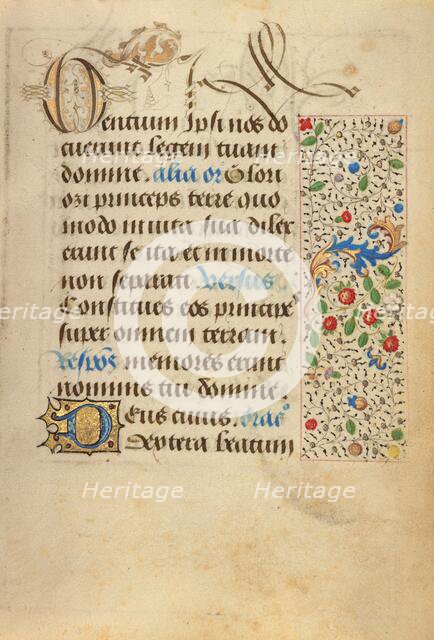 Gentium Ipsi nos do
cuerunt legem tuam
domine. alia or Glori
ozi princeps terre quo
modo in vita sua dilex
erunt se ita et in morte
non separati Versus
Constitues eos principes
super omnem terram.
Respons memores erunt
nominis tui domine.
Deus cuius. orac
dextera beatum
Heritage Heritage Heritage
Heritage Heritage Heritage
Heritage Heritage